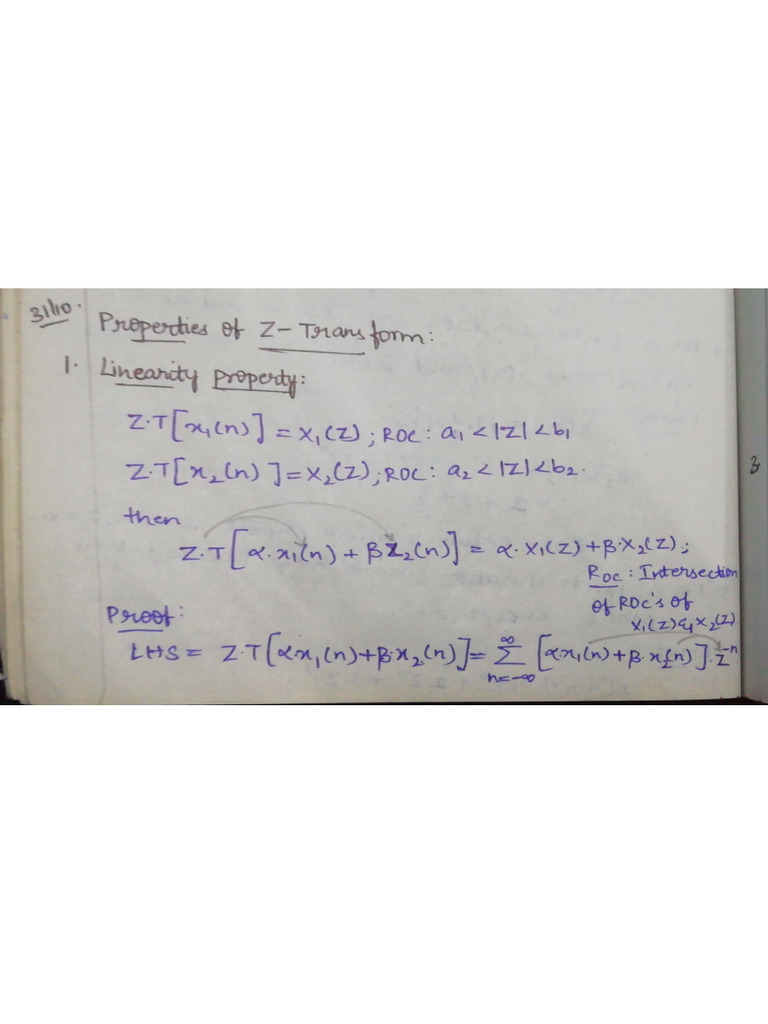 31/10.
Properties of Z-Transform:
1. Linearity property:
Z.T[x₁(n)] = X₁(Z) ; ROC: a₁ < |Z| < b₁
Z.T[x₂(n)] = X₂(Z) ; ROC: a₂ < |Z| < b₂.
then
Z.T[α.x₁(n) + βZ₂(n)] = α.X₁(Z) + β.X₂(Z) ;
ROC : Intersection
of ROC's of
X₁(Z) & X₂(Z)
Proof:
LHS = Z.T[α.x₁(n)+β.x₂(n)] = ∑_{n=-∞}^{∞} [αx₁(n)+β.x₂(n)].Z⁻ⁿ